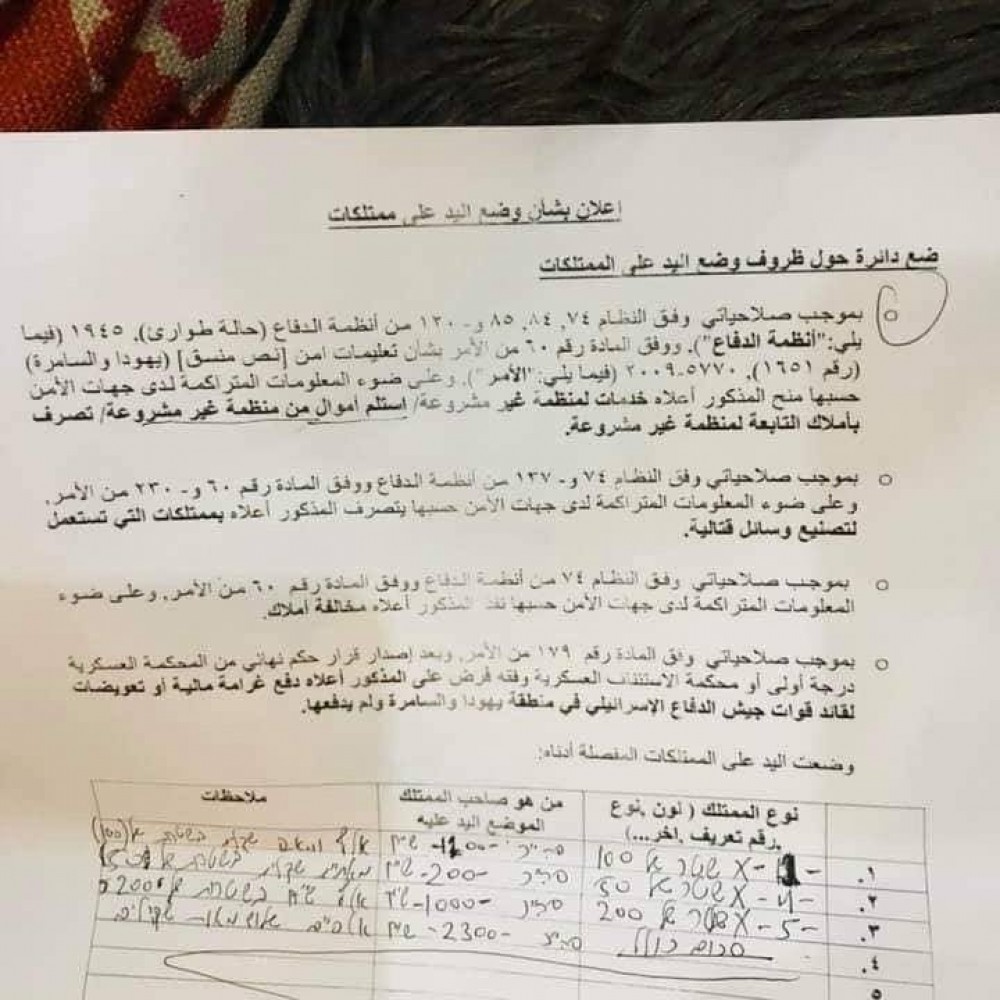 إعلان بشأن وضع اليد على ممتلكات
ضع دائرة حول ظروف وضع اليد على الممتلكات
o بموجب صلاحياتي وفق النظام ٧٤, ٨٤, ٨٥ و- ١٢٠ من أنظمة الدفاع (حالة طوارئ), ١٩٤٥ (فيما
يلي:"أنظمة الدفاع"), ووفق المادة رقم ٦٠ من الأمر بشأن تعليمات امن [نص منسق] (يهودا والسامرة)
(رقم ١٦٥١), ٥٧٧٠-٢٠٠٩ (فيما يلي:"الأمر"), وعلى ضوء المعلومات المتراكمة لدى جهات الأمن
حسبها منح المذكور أعلاه خدمات لمنظمة غير مشروعة/ إستلم أموال من منظمة غير مشروعة/ تصرف
بأملاك التابعة لمنظمة غير مشروعة.
o بموجب صلاحياتي وفق النظام ٧٤ و- ١٣٧ من أنظمة الدفاع ووفق المادة رقم ٦٠ و- ٢٣٠ من الأمر,
وعلى ضوء المعلومات المتراكمة لدى جهات الأمن حسبها يتصرف المذكور أعلاه بممتلكات التي تستعمل
لتصنيع وسائل قتالية.
o بموجب صلاحياتي وفق النظام ٧٤ من أنظمة الدفاع ووفق المادة رقم ٦٠ من الأمر, وعلى ضوء
المعلومات المتراكمة لدى جهات الأمن حسبها نفذ المذكور أعلاه مخالفة أملاك.
o بموجب صلاحياتي وفق المادة رقم ١٧٩ من الأمر, وبعد إصدار قرار حكم نهائي من المحكمة العسكرية
درجة أولى أو محكمة الاستئناف العسكرية وفقه فرض على المذكور أعلاه دفع غرامة مالية أو تعويضات
لقائد قوات جيش الدفاع الإسرائيلي في منطقة يهودا والسامرة ولم يدفعها.
وضعت اليد على الممتلكات المفصلة أدناه:
نوع الممتلك ( لون ,نوع ,رقم تعريف ,اخر...) من هو صاحب الممتلك الموضع اليد عليه ملاحظات
١. X שטר של 100 -1100- ש"ח
٢. -4- X שטר של 50 -200- ש"ח
٣. -5- X שטר של 200 -1000- ש"ח
٤. סכום כולל -2300- ש"ח
٥.